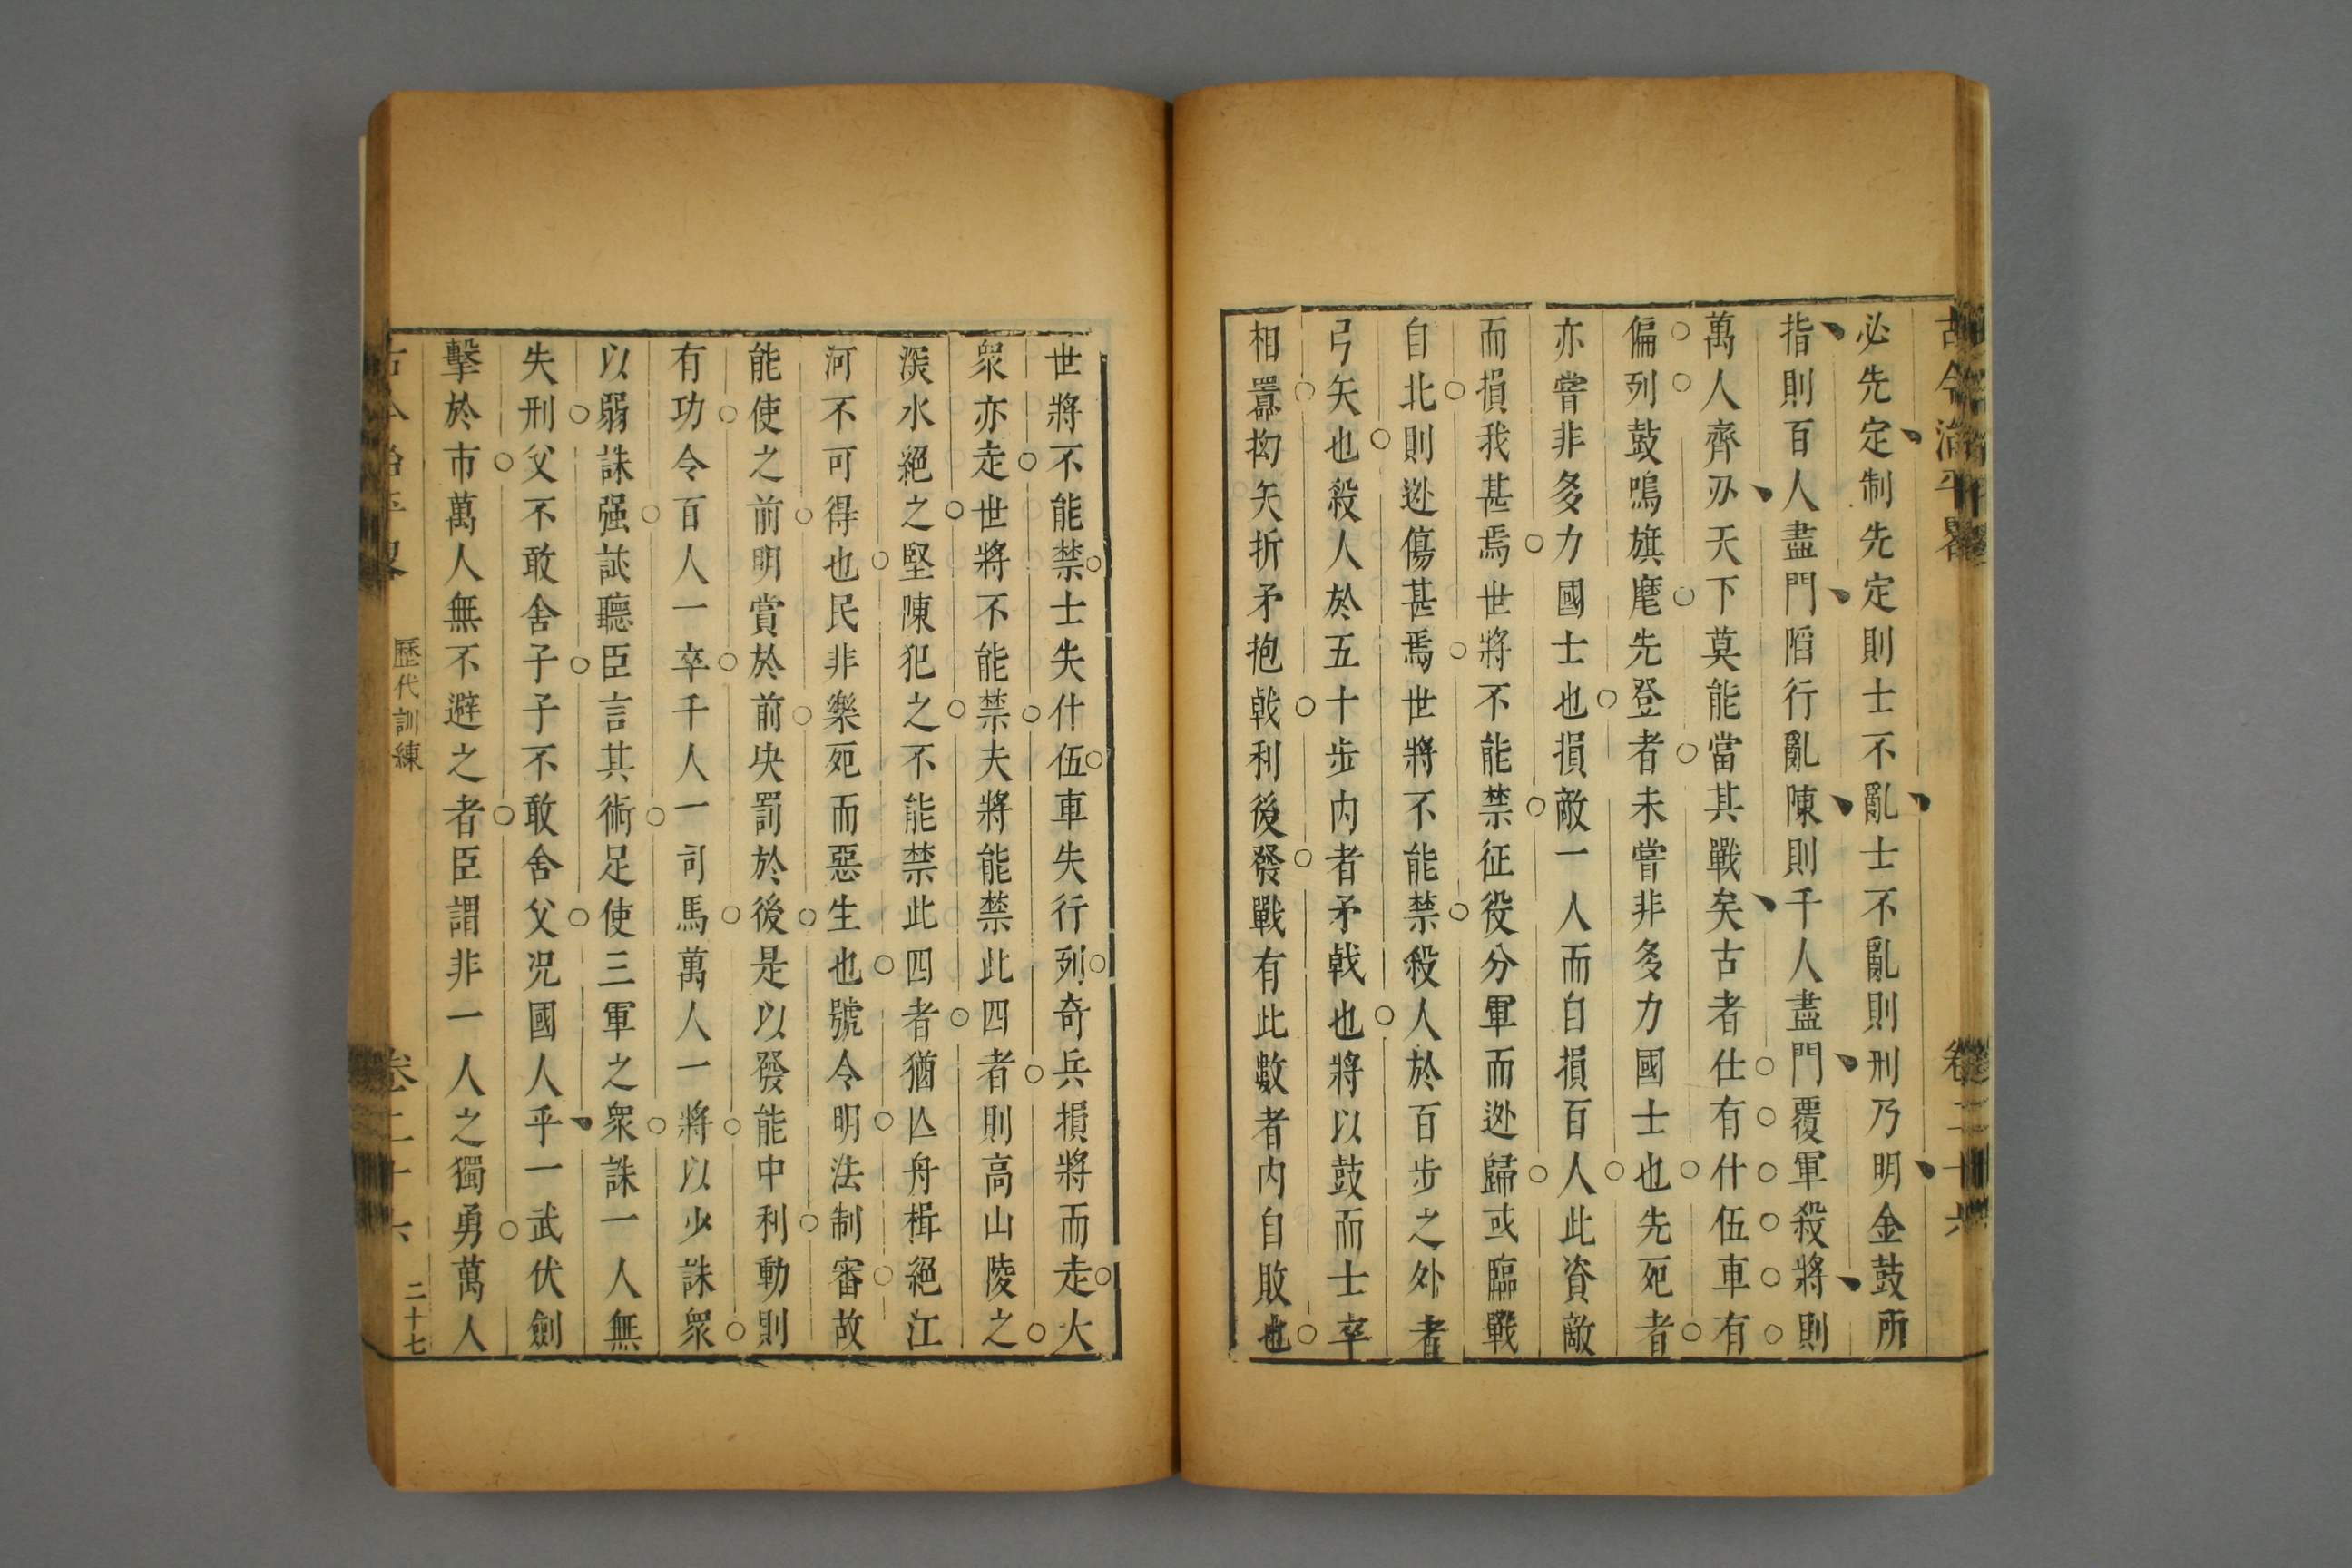 必先定制先定則士不亂士不亂則刑乃明金鼓所
指則百人盡鬥陷行亂陳則千人盡鬥覆軍殺將則
萬人齊刃天下莫能當其戰矣古者仕有什伍車有
偏列鼓鳴旗麾先登者未嘗非多力國士也先死者
亦嘗非多力國士也損敵一人而自損百人此資敵
而損我甚焉世將不能禁征役分軍而逃歸或臨戰
自北則逃傷甚焉世將不能禁殺人於百步之外者
弓矢也殺人於五十步内者矛戟也將以鼓而士卒
相囂拗矢折矛抱戟利後發戰有此數者内自敗也
世將不能禁士失什伍車失行列奇兵損將而走大
衆亦走世將不能禁夫將能禁此四者則高山陵之
深水絕之堅陳犯之不能禁此四者猶亾舟楫絕江
河不可得也民非樂死而惡生也號令明法制審故
能使之前明賞於前决罰於後是以發能中利動則
有功令百人一卒千人一司馬萬人一將以少誅衆
以弱誅强試聽臣言其術足使三軍之衆誅一人無
失刑父不敢舍子子不敢舍父况國人乎一武伏劍
擊於市萬人無不避之者臣謂非一人之獨勇萬人
歷代訓練
卷二十六
二十七